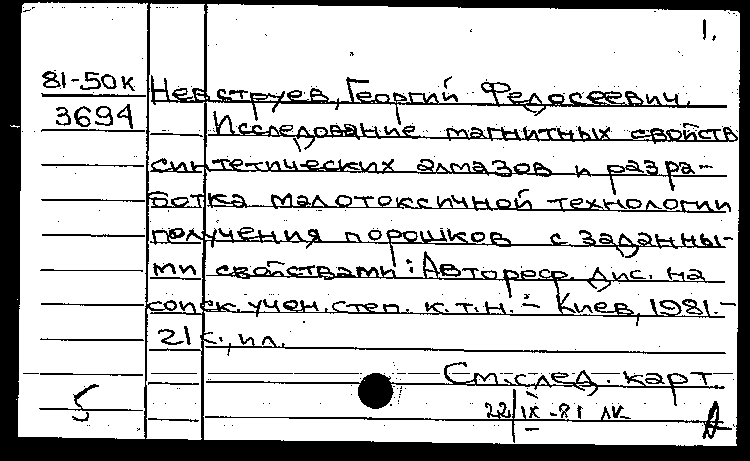 1.
81-50к
3694
Невструев, Георгий Федосеевич.
Исследование магнитных свойств
синтетических алмазов и разра-
ботка малотоксичной технологии
получения порошков с заданны-
ми свойствами: Автореф. дис. на
соиск. учен. степ. к.т.н. - Киев, 1981.-
21 с., ил.
См. след. карт.
5
22/IX-81 лк
А